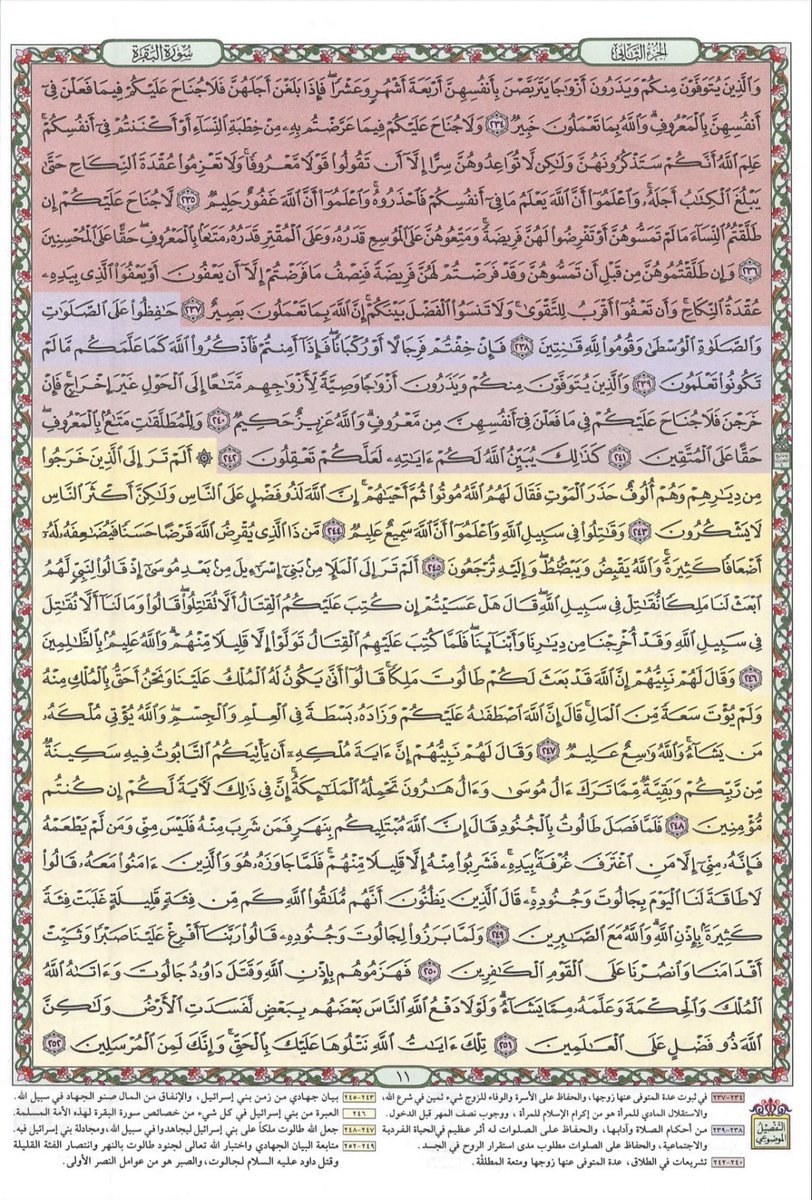 الجزء الثاني
سورة البقرة
وَالَّذِينَ يُتَوَفَّوْنَ مِنكُمْ وَيَذَرُونَ أَزْوَاجًا يَتَرَبَّصْنَ بِأَنفُسِهِنَّ أَرْبَعَةَ أَشْهُرٍ وَعَشْرًا ۖ فَإِذَا بَلَغْنَ أَجَلَهُنَّ فَلَا جُنَاحَ عَلَيْكُمْ فِيمَا فَعَلْنَ فِي
أَنفُسِهِنَّ بِالْمَعْرُوفِ ۗ وَاللَّهُ بِمَا تَعْمَلُونَ خَبِيرٌ ٢٣٤ وَلَا جُنَاحَ عَلَيْكُمْ فِيمَا عَرَّضْتُم بِهِ مِنْ خِطْبَةِ النِّسَاءِ أَوْ أَكْنَنتُمْ فِي أَنفُسِكُمْ ۚ
عَلِمَ اللَّهُ أَنَّكُمْ سَتَذْكُرُونَهُنَّ وَلَٰكِن لَّا تُوَاعِدُوهُنَّ سِرًّا إِلَّا أَن تَقُولُوا قَوْلًا مَّعْرُوفًا ۚ وَلَا تَعْزِمُوا عُقْدَةَ النِّكَاحِ حَتَّىٰ
يَبْلُغَ الْكِتَابُ أَجَلَهُ ۚ وَاعْلَمُوا أَنَّ اللَّهَ يَعْلَمُ مَا فِي أَنفُسِكُمْ فَاحْذَرُوهُ ۚ وَاعْلَمُوا أَنَّ اللَّهَ غَفُورٌ حَلِيمٌ ٢٣٥ لَّا جُنَاحَ عَلَيْكُمْ إِن
طَلَّقْتُمُ النِّسَاءَ مَا لَمْ تَمَسُّوهُنَّ أَوْ تَفْرِضُوا لَهُنَّ فَرِيضَةً ۚ وَمَتِّعُوهُنَّ عَلَى الْمُوسِعِ قَدَرُهُ وَعَلَى الْمُقْتِرِ قَدَرُهُ مَتَاعًا بِالْمَعْرُوفِ ۖ حَقًّا عَلَى الْمُحْسِنِينَ
٢٣٦ وَإِن طَلَّقْتُمُوهُنَّ مِن قَبْلِ أَن تَمَسُّوهُنَّ وَقَدْ فَرَضْتُمْ لَهُنَّ فَرِيضَةً فَنِصْفُ مَا فَرَضْتُمْ إِلَّا أَن يَعْفُونَ أَوْ يَعْفُوَ الَّذِي بِيَدِهِ
عُقْدَةُ النِّكَاحِ ۚ وَأَن تَعْفُوا أَقْرَبُ لِلتَّقْوَىٰ ۚ وَلَا تَنسَوُا الْفَضْلَ بَيْنَكُمْ ۚ إِنَّ اللَّهَ بِمَا تَعْمَلُونَ بَصِيرٌ ٢٣٧ حَافِظُوا عَلَى الصَّلَوَاتِ
وَالصَّلَاةِ الْوُسْطَىٰ وَقُومُوا لِلَّهِ قَانِتِينَ ٢٣٨ فَإِنْ خِفْتُمْ فَرِجَالًا أَوْ رُكْبَانًا ۖ فَإِذَا أَمِنتُمْ فَاذْكُرُوا اللَّهَ كَمَا عَلَّمَكُم مَّا لَمْ
تَكُونُوا تَعْلَمُونَ ٢٣٩ وَالَّذِينَ يُتَوَفَّوْنَ مِنكُمْ وَيَذَرُونَ أَزْوَاجًا وَصِيَّةً لِّأَزْوَاجِهِم مَّتَاعًا إِلَى الْحَوْلِ غَيْرَ إِخْرَاجٍ ۚ فَإِنْ
خَرَجْنَ فَلَا جُنَاحَ عَلَيْكُمْ فِي مَا فَعَلْنَ فِي أَنفُسِهِنَّ مِن مَّعْرُوفٍ ۗ وَاللَّهُ عَزِيزٌ حَكِيمٌ ٢٤٠ وَلِلْمُطَلَّقَاتِ مَتَاعٌ بِالْمَعْرُوفِ ۖ
حَقًّا عَلَى الْمُتَّقِينَ ٢٤١ كَذَٰلِكَ يُبَيِّنُ اللَّهُ لَكُمْ آيَاتِهِ لَعَلَّكُمْ تَعْقِلُونَ ٢٤٢ ۞ أَلَمْ تَرَ إِلَى الَّذِينَ خَرَجُوا
مِن دِيَارِهِمْ وَهُمْ أُلُوفٌ حَذَرَ الْمَوْتِ فَقَالَ لَهُمُ اللَّهُ مُوتُوا ثُمَّ أَحْيَاهُمْ ۚ إِنَّ اللَّهَ لَذُو فَضْلٍ عَلَى النَّاسِ وَلَٰكِنَّ أَكْثَرَ النَّاسِ
لَا يَشْكُرُونَ ٢٤٣ وَقَاتِلُوا فِي سَبِيلِ اللَّهِ وَاعْلَمُوا أَنَّ اللَّهَ سَمِيعٌ عَلِيمٌ ٢٤٤ مَّن ذَا الَّذِي يُقْرِضُ اللَّهَ قَرْضًا حَسَنًا فَيُضَاعِفَهُ لَهُ
أَضْعَافًا كَثِيرَةً ۚ وَاللَّهُ يَقْبِضُ وَيَبْصُطُ وَإِلَيْهِ تُرْجَعُونَ ٢٤٥ أَلَمْ تَرَ إِلَى الْمَلَإِ مِن بَنِي إِسْرَائِيلَ مِن بَعْدِ مُوسَىٰ إِذْ قَالُوا لِنَبِيٍّ لَّهُمُ
ابْعَثْ لَنَا مَلِكًا نُّقَاتِلْ فِي سَبِيلِ اللَّهِ ۖ قَالَ هَلْ عَسَيْتُمْ إِن كُتِبَ عَلَيْكُمُ الْقِتَالُ أَلَّا تُقَاتِلُوا ۖ قَالُوا وَمَا لَنَا أَلَّا نُقَاتِلَ
فِي سَبِيلِ اللَّهِ وَقَدْ أُخْرِجْنَا مِن دِيَارِنَا وَأَبْنَائِنَا ۖ فَلَمَّا كُتِبَ عَلَيْهِمُ الْقِتَالُ تَوَلَّوْا إِلَّا قَلِيلًا مِّنْهُمْ ۗ وَاللَّهُ عَلِيمٌ بِالظَّالِمِينَ
٢٤٦ وَقَالَ لَهُمْ نَبِيُّهُمْ إِنَّ اللَّهَ قَدْ بَعَثَ لَكُمْ طَالُوتَ مَلِكًا ۚ قَالُوا أَنَّىٰ يَكُونُ لَهُ الْمُلْكُ عَلَيْنَا وَنَحْنُ أَحَقُّ بِالْمُلْكِ مِنْهُ
وَلَمْ يُؤْتَ سَعَةً مِّنَ الْمَالِ ۚ قَالَ إِنَّ اللَّهَ اصْطَفَاهُ عَلَيْكُمْ وَزَادَهُ بَسْطَةً فِي الْعِلْمِ وَالْجِسْمِ ۖ وَاللَّهُ يُؤْتِي مُلْكَهُ
مَن يَشَاءُ ۚ وَاللَّهُ وَاسِعٌ عَلِيمٌ ٢٤٧ وَقَالَ لَهُمْ نَبِيُّهُمْ إِنَّ آيَةَ مُلْكِهِ أَن يَأْتِيَكُمُ التَّابُوتُ فِيهِ سَكِينَةٌ
مِّن رَّبِّكُمْ وَبَقِيَّةٌ مِّمَّا تَرَكَ آلُ مُوسَىٰ وَآلُ هَارُونَ تَحْمِلُهُ الْمَلَائِكَةُ ۚ إِنَّ فِي ذَٰلِكَ لَآيَةً لَّكُمْ إِن كُنتُم
مُّؤْمِنِينَ ٢٤٨ فَلَمَّا فَصَلَ طَالُوتُ بِالْجُنُودِ قَالَ إِنَّ اللَّهَ مُبْتَلِيكُم بِنَهَرٍ فَمَن شَرِبَ مِنْهُ فَلَيْسَ مِنِّي وَمَن لَّمْ يَطْعَمْهُ
فَإِنَّهُ مِنِّي إِلَّا مَنِ اغْتَرَفَ غُرْفَةً بِيَدِهِ ۚ فَشَرِبُوا مِنْهُ إِلَّا قَلِيلًا مِّنْهُمْ ۚ فَلَمَّا جَاوَزَهُ هُوَ وَالَّذِينَ آمَنُوا مَعَهُ قَالُوا
لَا طَاقَةَ لَنَا الْيَوْمَ بِجَالُوتَ وَجُنُودِهِ ۚ قَالَ الَّذِينَ يَظُنُّونَ أَنَّهُم مُّلَاقُو اللَّهِ كَم مِّن فِئَةٍ قَلِيلَةٍ غَلَبَتْ فِئَةً
كَثِيرَةً بِإِذْنِ اللَّهِ ۗ وَاللَّهُ مَعَ الصَّابِرِينَ ٢٤٩ وَلَمَّا بَرَزُوا لِجَالُوتَ وَجُنُودِهِ قَالُوا رَبَّنَا أَفْرِغْ عَلَيْنَا صَبْرًا وَثَبِّتْ
أَقْدَامَنَا وَانصُرْنَا عَلَى الْقَوْمِ الْكَافِرِينَ ٢٥٠ فَهَزَمُوهُم بِإِذْنِ اللَّهِ وَقَتَلَ دَاوُودُ جَالُوتَ وَآتَاهُ اللَّهُ
الْمُلْكَ وَالْحِكْمَةَ وَعَلَّمَهُ مِمَّا يَشَاءُ ۗ وَلَوْلَا دَفْعُ اللَّهِ النَّاسَ بَعْضَهُم بِبَعْضٍ لَّفَسَدَتِ الْأَرْضُ وَلَٰكِنَّ
اللَّهَ ذُو فَضْلٍ عَلَى الْعَالَمِينَ ٢٥١ تِلْكَ آيَاتُ اللَّهِ نَتْلُوهَا عَلَيْكَ بِالْحَقِّ ۚ وَإِنَّكَ لَمِنَ الْمُرْسَلِينَ ٢٥٢
١١
التفصيل الموضوعي
٢٣٤-٢٣٧ في ثبوت عدة المتوفى عنها زوجها، والحفاظ على الأسرة والوفاء للزوج شيء ثمين في شرع الله،
والاستقلال المادي للمرأة هو من إكرام الإسلام للمرأة ، ووجوب نصف المهر قبل الدخول.
٢٣٨-٢٣٩ من أحكام الصلاة وآدابها، والحفاظ على الصلوات له أثر عظيم في الحياة الفردية
والاجتماعية، والحفاظ على الصلوات مطلوب مدى استقرار الروح في الجسد.
٢٤٠-٢٤٢ تشريعات في الطلاق، عدة المتوفى عنها زوجها ومتعة المطلقة.
٢٤٣-٢٤٥ بيان جهادي من زمن بني إسرائيل، والإنفاق من المال صنو الجهاد في سبيل الله.
٢٤٦ العبرة من بني إسرائيل في كل شيء من خصائص سورة البقرة لهذه الأمة المسلمة.
٢٤٧-٢٤٨ جعل الله طالوت ملكاً على بني إسرائيل ليجاهدوا في سبيل الله، ومجادلة بني إسرائيل فيه.
٢٤٩-٢٥٢ متابعة البيان الجهادي واختبار الله تعالى لجنود طالوت بالنهر وانتصار الفئة القليلة
وقتل داود عليه السلام لجالوت، والصبر هو من عوامل النصر الأولى.